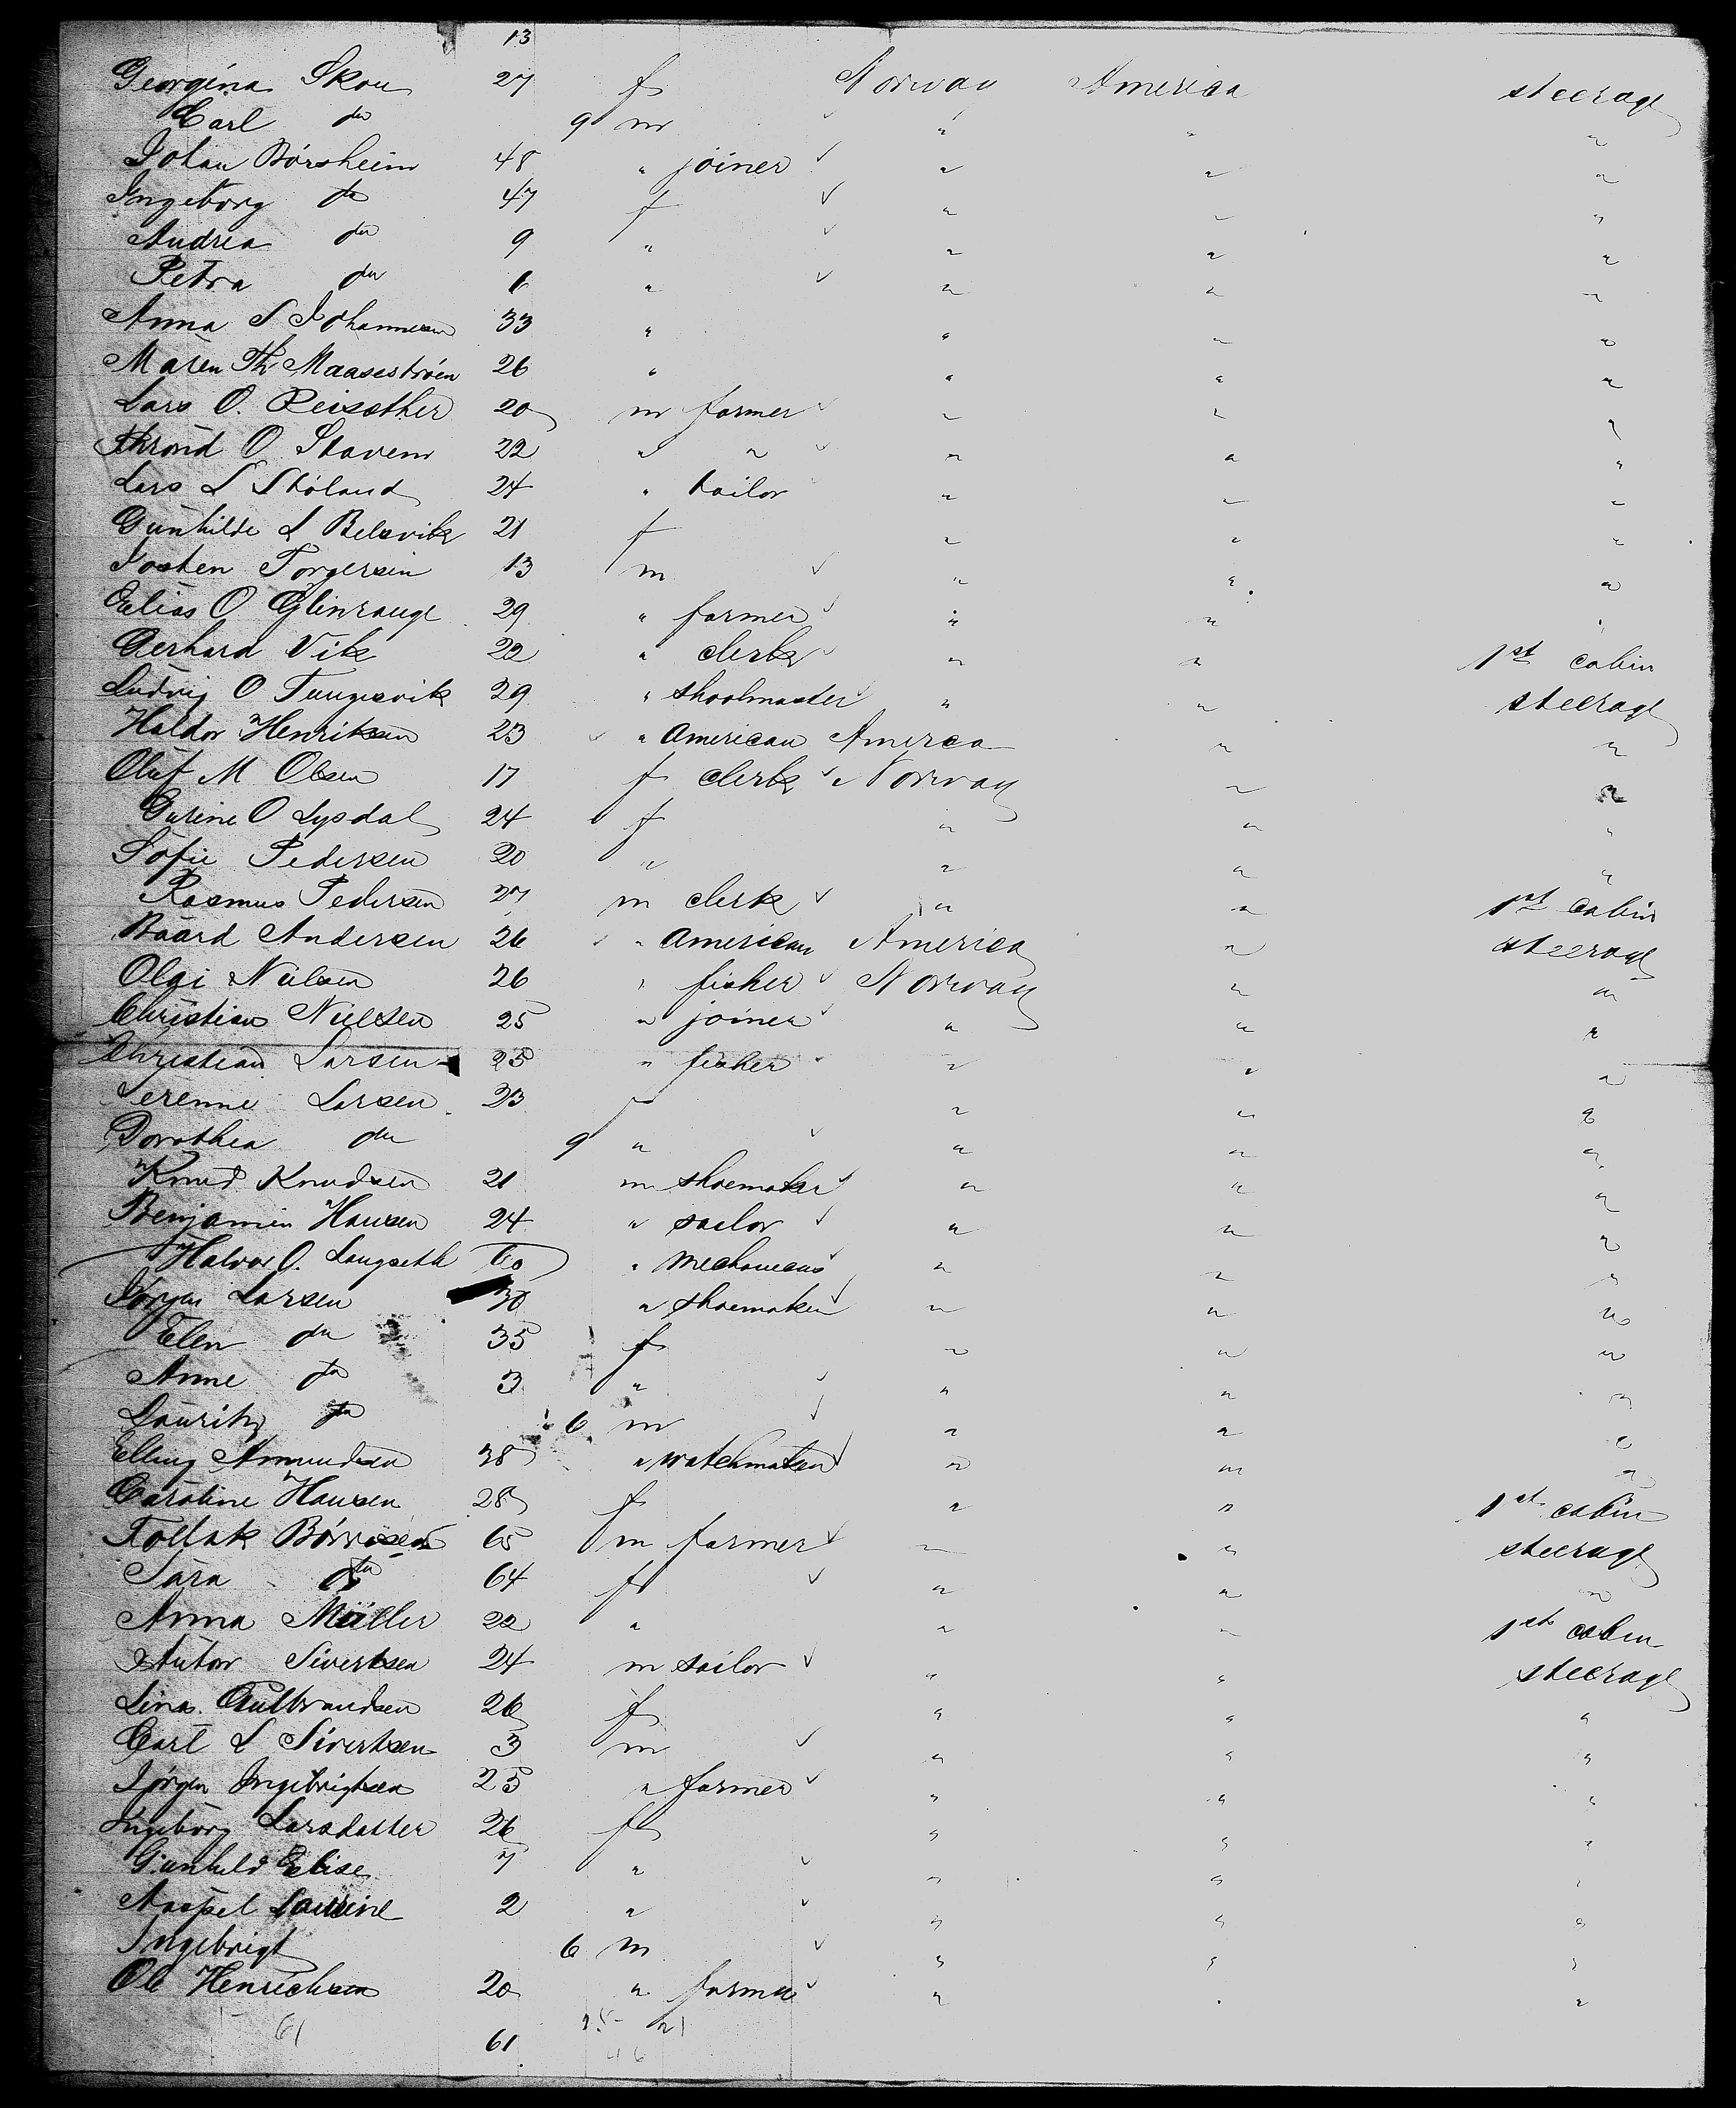 13
Georgina Skou 27 f Norway America steerage
Carl do 9 m " " "
Johan Börsheim 48 " joiner " " "
Ingeborg do 47 f " " "
Andrea do 9 " " " "
Petra do 6 " " " "
Anna S Johannesen 33 " " " "
Maren Th. Maaseströen 26 " " " "
Lars O. Reisether 20 m farmer " " "
Thrond O. Stavem 22 " " " " "
Lars L Stöland 24 " tailor " " "
Gunhilde L Belsvik 21 f " " "
Josten Torgersen 13 m " " "
Elias O Glinrange 29 " farmer " " "
Gerhard Vik 22 " clerk " " 1st cabin
Ludvig O Tungesvik 29 " shoolmaster " " steerage
Haldor Henriksen 23 " american America " "
Oluf M Olsen 17 f clerk " Norway " "
Gurine O Lysdal 24 f " " "
Sofie Pedersen 20 " " " "
Rasmus Pedersen 27 m clerk " " 1st cabin
Baard Andersen 26 " american America " steerage
Olai Nielsen 26 " fisher Norway " "
Christian Nielsen 25 " joiner " " "
Christian Larsen 25 " fisher " " "
Serenne Larsen 23 " " "
Dorothea do 9 " " " "
Knud Knudsen 21 m shoemaker " " "
Benjamin Hansen 24 " sailor " " "
Halvor O. Langseth 60 " mechanicus " " "
Jörgen Larsen 30 " shoemaker " " "
Elen do 35 f " " "
Anne do 3 " " " "
Lauritz do 6 m " " "
Elling Amundsen 38 " watchmaker " " "
Caroline Hansen 28 f " " 1st cabin
Tollak Börresen 65 m farmer " " steerage
Sara do 64 f " " "
Anna Müller 22 " " " 1st cabin
Anton Sivertsen 24 m sailor " " steerage
Lina Gulbrandsen 26 f " " "
Carl L Sivertsen 3 m " " "
Jörgen Ingebrigtsen 25 " farmer " " "
Ingeborg Larsdatter 26 f " " "
Gunhild Elise 7 " " " "
Laurine 2 " " " "
Ingebrigt 6 m " " "
Ole Henrichsen 20 " farmer " " "
61 61 25 21
46